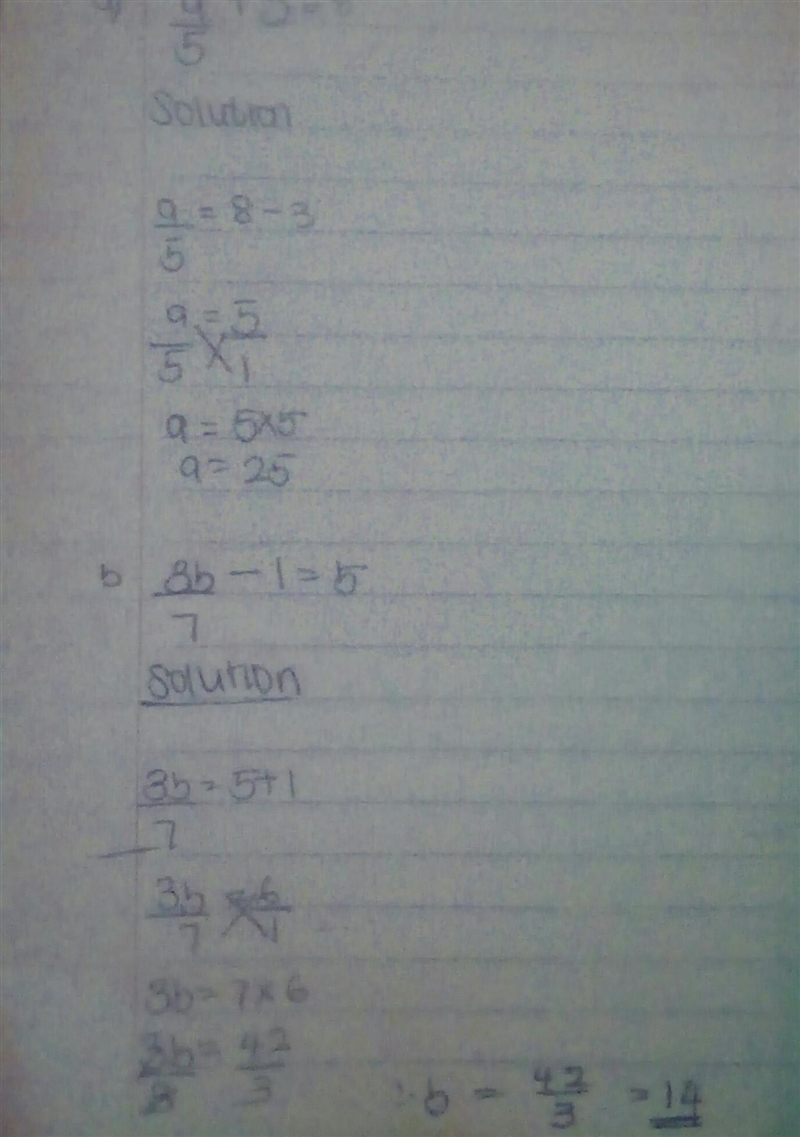 a/5 + 3 =
Solution
a/5 = 8 - 3
a/5 = 5/1
a = 5x5
a = 25
b 3b/7 - 1 = 5
Solution
3b/7 = 5+1
3b/7 = 6/1
3b = 7x6
3b/3 = 42/3 ∴ b = 42/3 = 14